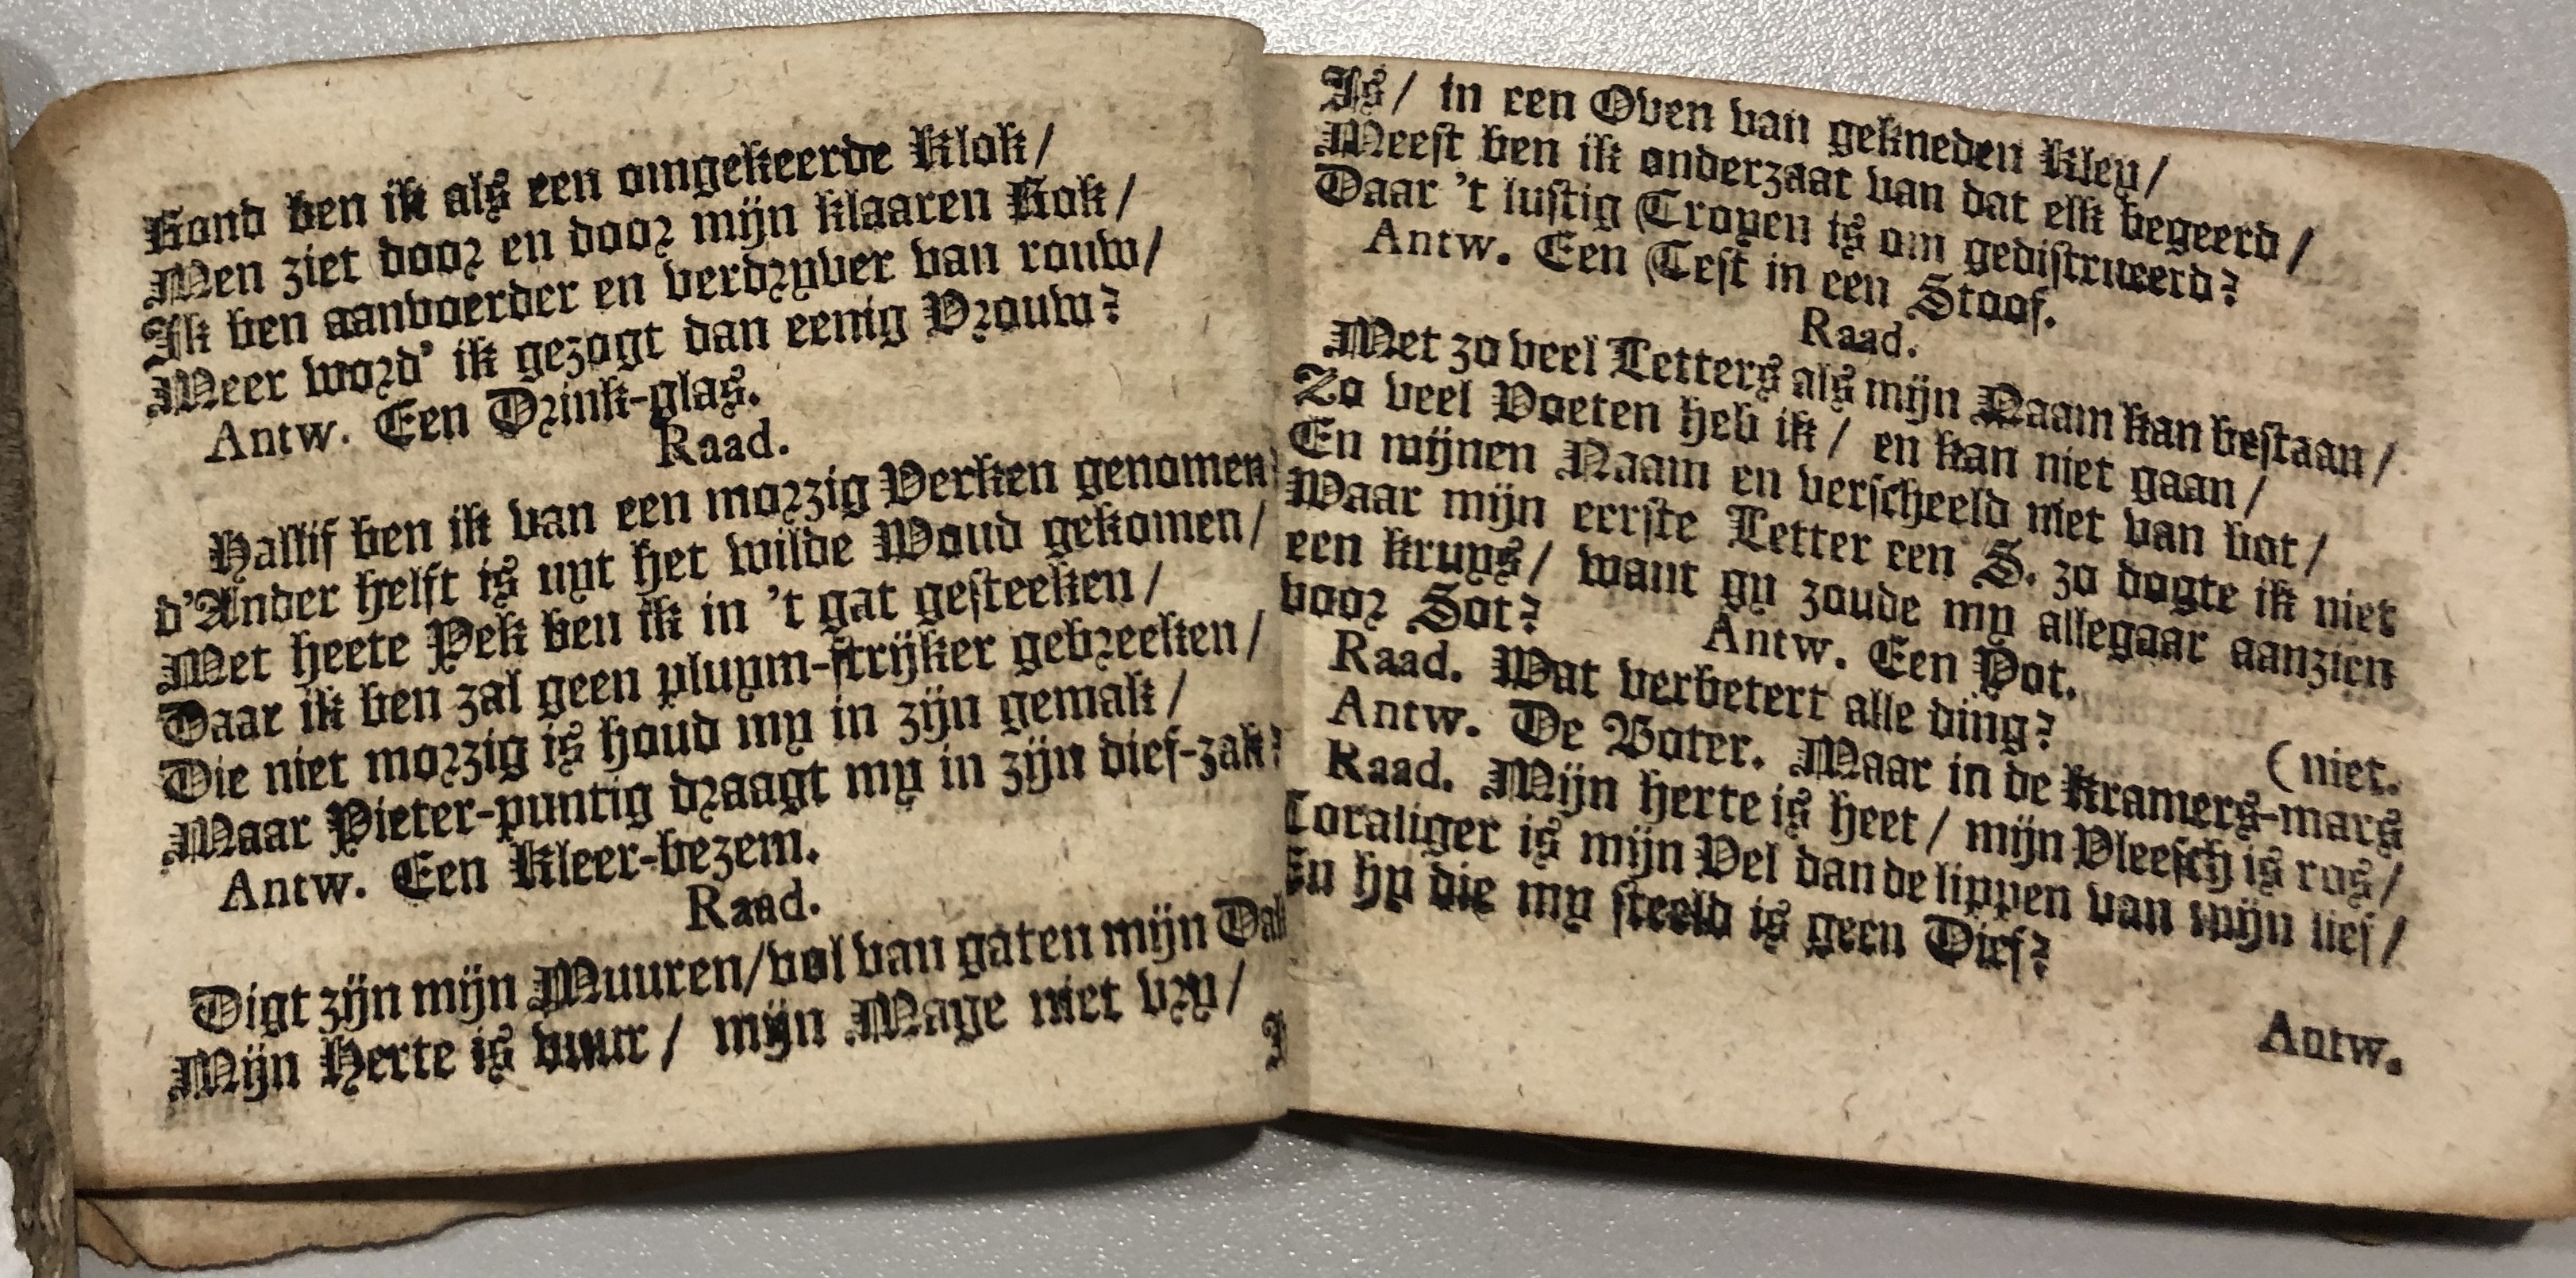 Rond ben ik als een omgekeerde Klok/
Men ziet door en door mijn klaaren Rok/
Ik ben aanvoerder en verdryver van rouw/
Meer word' ik gezogt dan eenig Vrouw?
Antw. Een Drink-glas.
Raad.
Hallif ben ik van een morzig Verken genomen
d'Ander helft is uyt het wilde Woud gekomen/
Met heete Pek ben ik in 't gat gesteeken/
Daar ik ben zal geen pluym-strijker gebreeken/
Die niet morzig is houd my in zijn gemak/
Maar Pieter-puntig draagt my in zijn dief-zak?
Antw. Een Kleer-bezem.
Raad.
Digt zijn mijn Muuren/vol van gaten mijn Dak
Mijn Herte is vuur/ mijn Mage niet vry/
Is/ in een Oven van gekneden Kley/
Meest ben ik onderzaat van dat elk begeerd/
Daar 't lustig Troyen is om gedistrueerd?
Antw. Een Test in een Stoof.
Raad.
Met zo veel Letters als mijn Naam kan bestaan/
Zo veel Voeten heb ik/ en kan niet gaan/
En mijnen Naam en verscheeld niet van bot/
Waar mijn eerste Letter een S. zo dogte ik niet
een kruys/ want gy zoude my allegaar aanzien
voor Sot? Antw. Een Pot.
Raad. Wat verbetert alle ding?
Antw. De Boter. Maar in de Kramers-mars
(niet.
Raad. Mijn herte is heet/ mijn Vleesch is ros/
Coraliger is mijn Vel dan de lippen van mijn lief/
En hy die my steeld is geen Dief?
Antw.